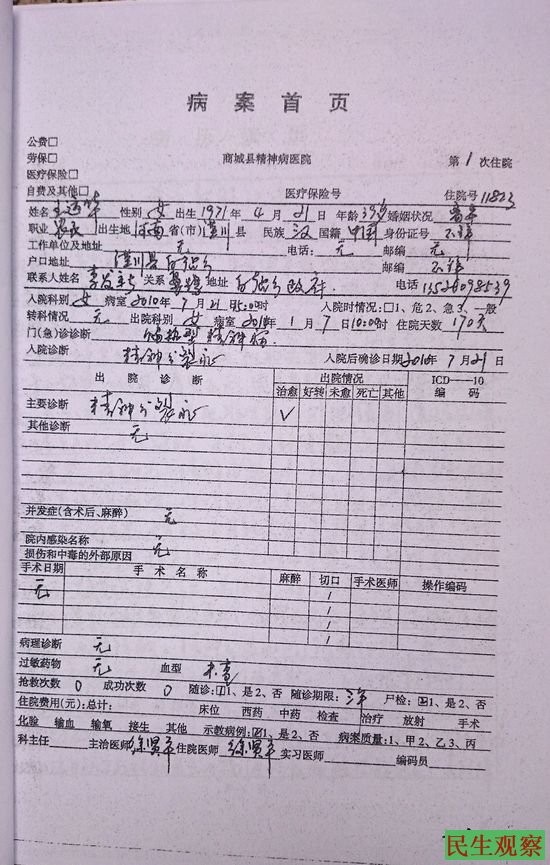 病案首页
公费□
劳保□ 商城县精神病医院 第1次住院
医疗保险□
自费及其他□ 医疗保险号 住院号11823
姓名 性别 女 出生1971年4月21日 年龄39岁 婚姻状况
职业 农民 出生地 河南省(市)潢川县 民族 汉 国籍 中国 身份证号 不详
工作单位及地址 无 电话: 无 邮编 无
户口地址 潢川县 邮编 不详
联系人姓名 关系 地址 电话
入院科别 女 病室 2010年7月21日 时 入院时情况:□1、危2、急3、一般
转科情况 无 出院科别 女 病室 年1月7日10:00时 住院天数 170天
门(急)诊诊断 精神病
入院诊断 精神分裂症 入院后确诊日期2010年7月21日
出院诊断 出院情况 ICD—10
治愈 好转 未愈 死亡 其他 编码
主要诊断 精神分裂症 ✓
其他诊断 无
并发症(含术后、麻醉) 无
院内感染名称 无
损伤和中毒的外部原因
手术日期 手术名称 麻醉 切口 手术医师 操作编码
无 /
/
/
/
病理诊断 无
过敏药物 无 血型 未查
抢救次数 0 成功次数 0 随诊:1、是2、否 随诊期限: 尸检:2 1、是2、否
住院费用(元):总计: 床位 西药 中药 检查 治疗 放射 手术
化验 输血 输氧 接生 其他 示教病例:2 1、是2、否 病案质量:1、甲2、乙3、丙
科主任 主治医师 住院医师 实习医师 编码员
民生观察